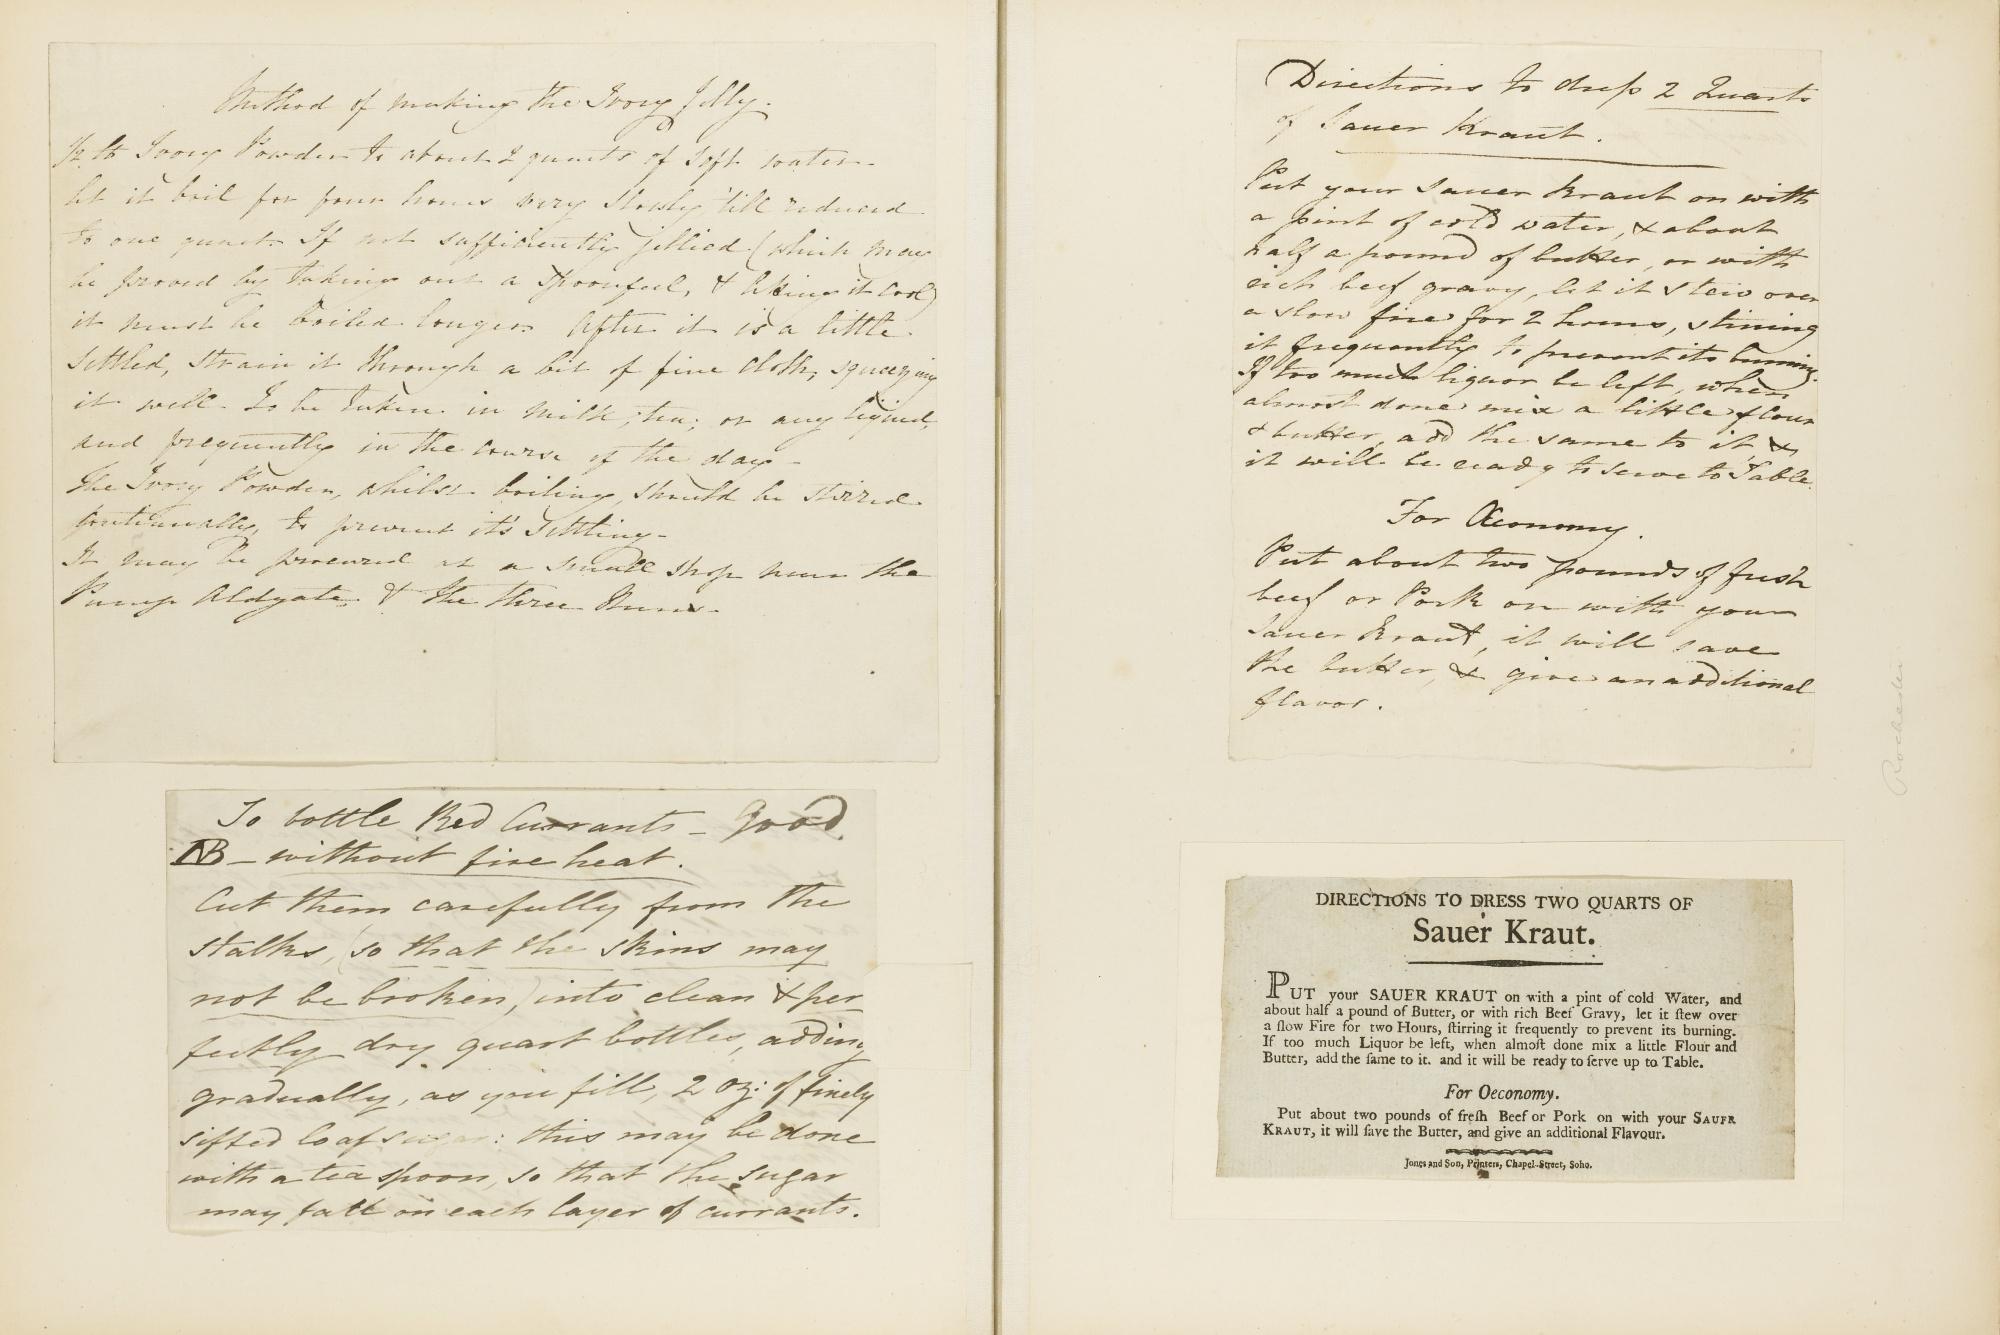 Method of making the Ivory Jelly.
lb Ivory Powder to about 2 quarts of soft water
let it boil for four hours very slowly, 'till reduced
to one quart. If not sufficiently jellied (which may
be proved by taking out a spoonful, & letting it cool)
it must be boiled longer. After it is a little
settled, strain it through a bit of fine cloth, squeezing
it well. To be taken in milk, tea; or any liquid,
and frequently in the course of the day -
The Ivory Powder, whilst boiling, should be stirred
continually, to prevent it's settling -
It may be procured at a small shop near the
Pump Aldgate, & the three Nuns.
To bottle Red Currants - Good
NB - without fire heat.
Cut them carefully from the
stalks, (so that the skins may
not be broken,) into clean & per
fectly dry quart bottles, adding
gradually, as you fill, 2 oz: of finely
sifted loaf sugar: this may be done
with a tea spoon, so that the sugar
may fall on each layer of currants.
Directions to dress 2 Quarts
of Sauer Kraut.
Put your Sauer Kraut on with
a pint of cold water, & about
half a pound of butter, or with
rich beef gravy, let it stew over
a slow fire for 2 hours, stirring
it frequently to prevent its burning.
If too much liquor be left, when
almost done mix a little flour
& butter, add the same to it, &
it will be ready to serve to Table.
For Œconomy.
Put about two pounds of fresh
beef or Pork on with your
Sauer Kraut, it will save
the butter, & give an additional
flavor.
Rochester
DIRECTIONS TO DRESS TWO QUARTS OF
Sauer Kraut.
PUT your SAUER KRAUT on with a pint of cold Water, and
about half a pound of Butter, or with rich Beef Gravy, let it ſtew over
a ſlow Fire for two Hours, ſtirring it frequently to prevent its burning.
If too much Liquor be left, when almoſt done mix a little Flour and
Butter, add the ſame to it. and it will be ready to ſerve up to Table.
For Oeconomy.
Put about two pounds of freſh Beef or Pork on with your SAUER
KRAUT, it will ſave the Butter, and give an additional Flavour.
Jones and Son, Printers, Chapel-Street, Soho.